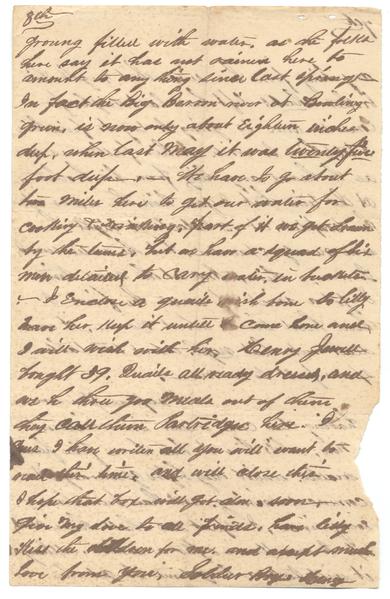 8th
ground filled with water, as the folks
here say it has not rained here to
amount to any thing since last spring
In fact the Big Barron river at Bowling
green, is now only about Eighteen inches
deep, when last May it was twenty five
foot deep. We have to go about
two miles here to get our water for
cooking & drinking, part of it we get drawn
by the teams, but we have a squad of six
men detailed to cary water in buckets
- I Enclose a quails wish bone to Libby
have her keep it untill I come home and
I will wish with her, Henry Jewell
bought 19. Quails all ready dresed, and
we had three good Meals out of them
they call them Partridges here. I
have writen all you will want to
read this time, and will close this.
I hope that box will get along soon
Give My love to all friends, have Libby
Kiss the children for me. and accept much
love from Your, Soldier Boy. Henry